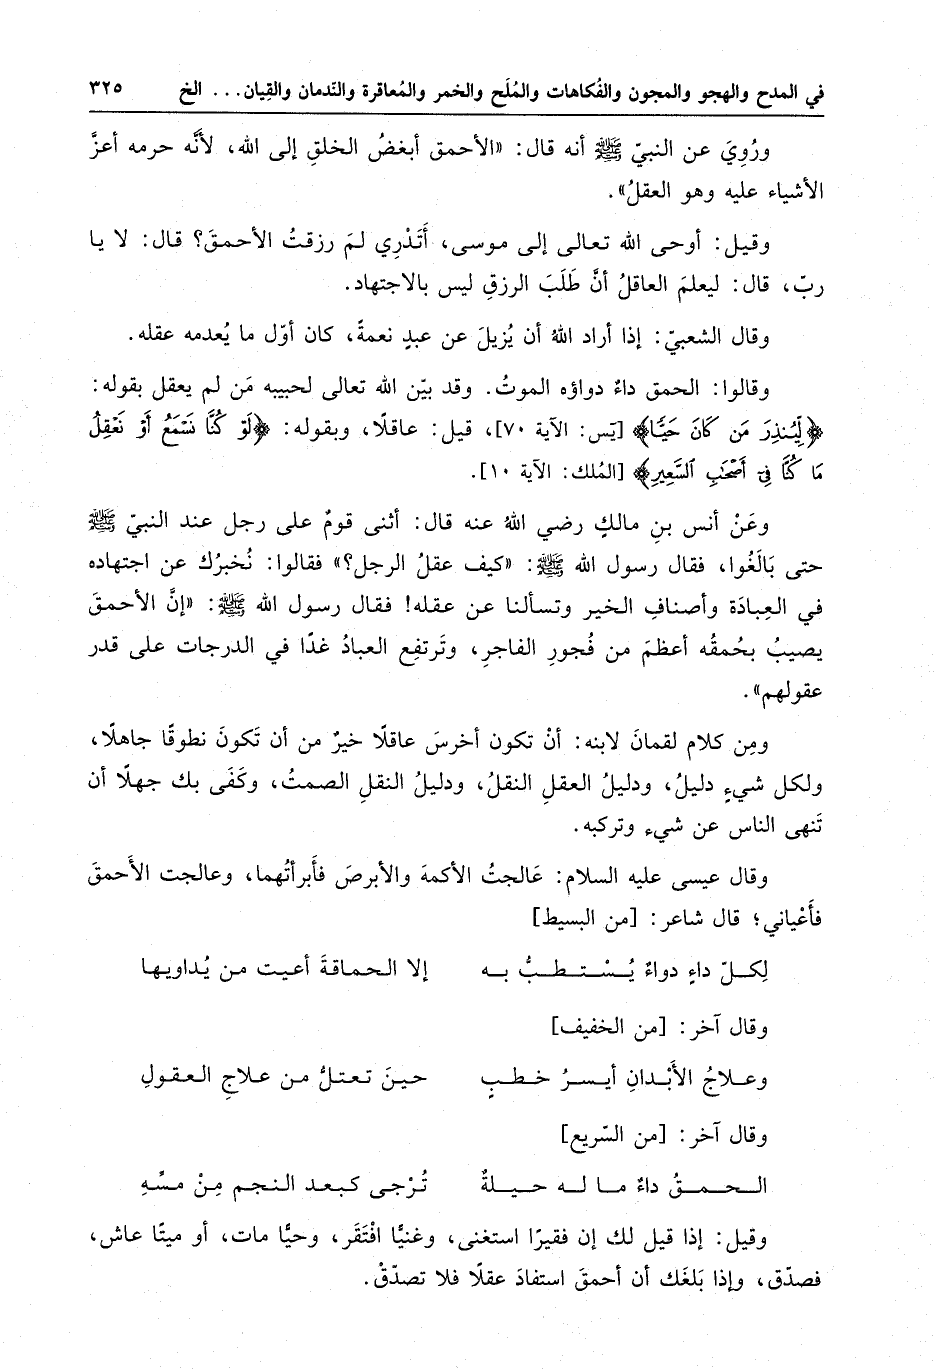 في المدح والهجو والمجون والفُكاهات والمُلَح والخمر والمُعاقرة والنّدمان والقِيان... الخ ٣٢٥
ورُوِيَ عن النبيّ ﷺ أنه قال: «الأحمق أبغضُ الخلقِ إلى الله، لأنَّه حرمه أعزَّ
الأشياء عليه وهو العقلُ».
وقيل: أوحى الله تعالى إلى موسى، أَتَدْرِي لمَ رزقتُ الأحمقَ؟ قال: لا يا
ربّ، قال: ليعلمَ العاقلُ أنَّ طَلَبَ الرزقِ ليس بالاجتهاد.
وقال الشعبيّ: إذا أراد اللهُ أن يُزيلَ عن عبدٍ نعمةً، كان أوّل ما يُعدمه عقله.
وقالوا: الحمق داءٌ دواؤه الموتُ. وقد بيّن الله تعالى لحبيبه مَن لم يعقل بقوله:
﴿لِّيُنذِرَ مَن كَانَ حَيًّا﴾ [يَس: الآية ٧٠]، قيل: عاقلًا، وبقوله: ﴿لَوْ كُنَّا نَسْمَعُ أَوْ نَعْقِلُ
مَا كُنَّا فِىٓ أَصْحَٰبِ ٱلسَّعِيرِ﴾ [المُلك: الآية ١٠].
وعَنْ أنس بنِ مالكٍ رضي اللهُ عنه قال: أثنى قومٌ على رجل عند النبيّ ﷺ
حتى بَالَغُوا، فقال رسول الله ﷺ: «كيف عقلُ الرجل؟» فقالوا: نُخبرُك عن اجتهاده
في العِبادَة وأصنافِ الخير وتسألنا عن عقله! فقال رسول الله ﷺ: «إنَّ الأحمقَ
يصيبُ بحُمقُه أعظمَ من فُجورِ الفاجرِ، وتَرتفِع العبادُ غدًا في الدرجات على قدر
عقولهم».
ومِن كلام لقمانَ لابنه: أنْ تكون أخرسَ عاقلًا خيرٌ من أن تَكونَ نطوقًا جاهلًا،
ولكل شيءٍ دليلُ، ودليلُ العقلِ النقلُ، ودليلُ النقلِ الصمتُ، وكَفَى بك جهلًا أن
تَنهى الناس عن شيء وتركبه.
وقال عيسى عليه السلام: عَالجتُ الأكمهَ والأبرصَ فأَبرأتُهما، وعالجت الأَحمقَ
فأَعْياني؛ قال شاعر: [من البسيط]
لِكلّ داءٍ دواءٌ يُسْتطبُّ به إلا الحماقةَ أعيت من يُداويها
وقال آخر: [من الخفيف]
وعلاجُ الأَبْدانِ أيسرُ خطبٍ حينَ تعتلُّ من علاجِ العقولِ
وقال آخر: [من السّريع]
الحمقُ داءٌ ما له حيلةٌ تُرْجى كبعد النجم مِنْ مسِّهِ
وقيل: إذا قيل لك إن فقيرًا استغنى، وغنيًّا افْتَقَر، وحيًّا مات، أو ميتًا عاش،
فصدّق، وإذا بَلغَك أن أحمقَ استفادَ عقلًا فلا تصدّقْ.